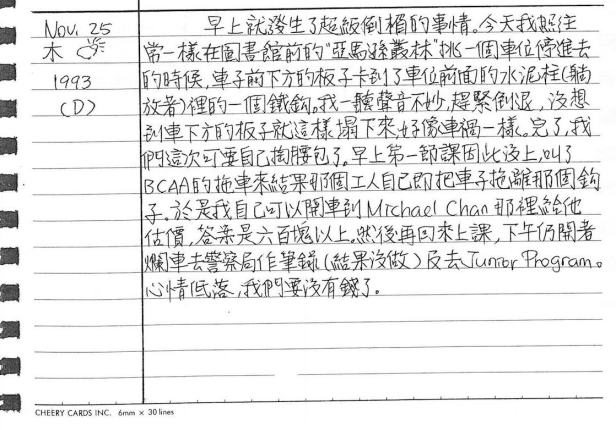 Nov. 25
木
1993
(D)
早上就發生了超級倒楣的事情。今天我照往
常一樣在圖書館前的"亞馬孫叢林"挑一個車位停進去
的時候,車子前下方的板子卡到了車位前面的水泥柱(躺
放著)裡的一個鐵鈎。我一聽聲音不妙,趕緊倒退,沒想
到車下方的板子就這樣塌下來,好像車禍一樣。完了,我
們這次可要自己掏腰包了。早上第一節課因此沒上,叫了
BCAA的拖車來結果那個工人自己即把車子拖離那個鈎
子。於是我自己可以開車到Michael Chan那裡給他
估價,答案是六百塊以上。然後再回來上課,下午仍開著
爛車去警察局作筆錄(結果沒做)及去Junior Program。
心情低落,我們要沒有錢了。
CHEERY CARDS INC. 6mm × 30 lines